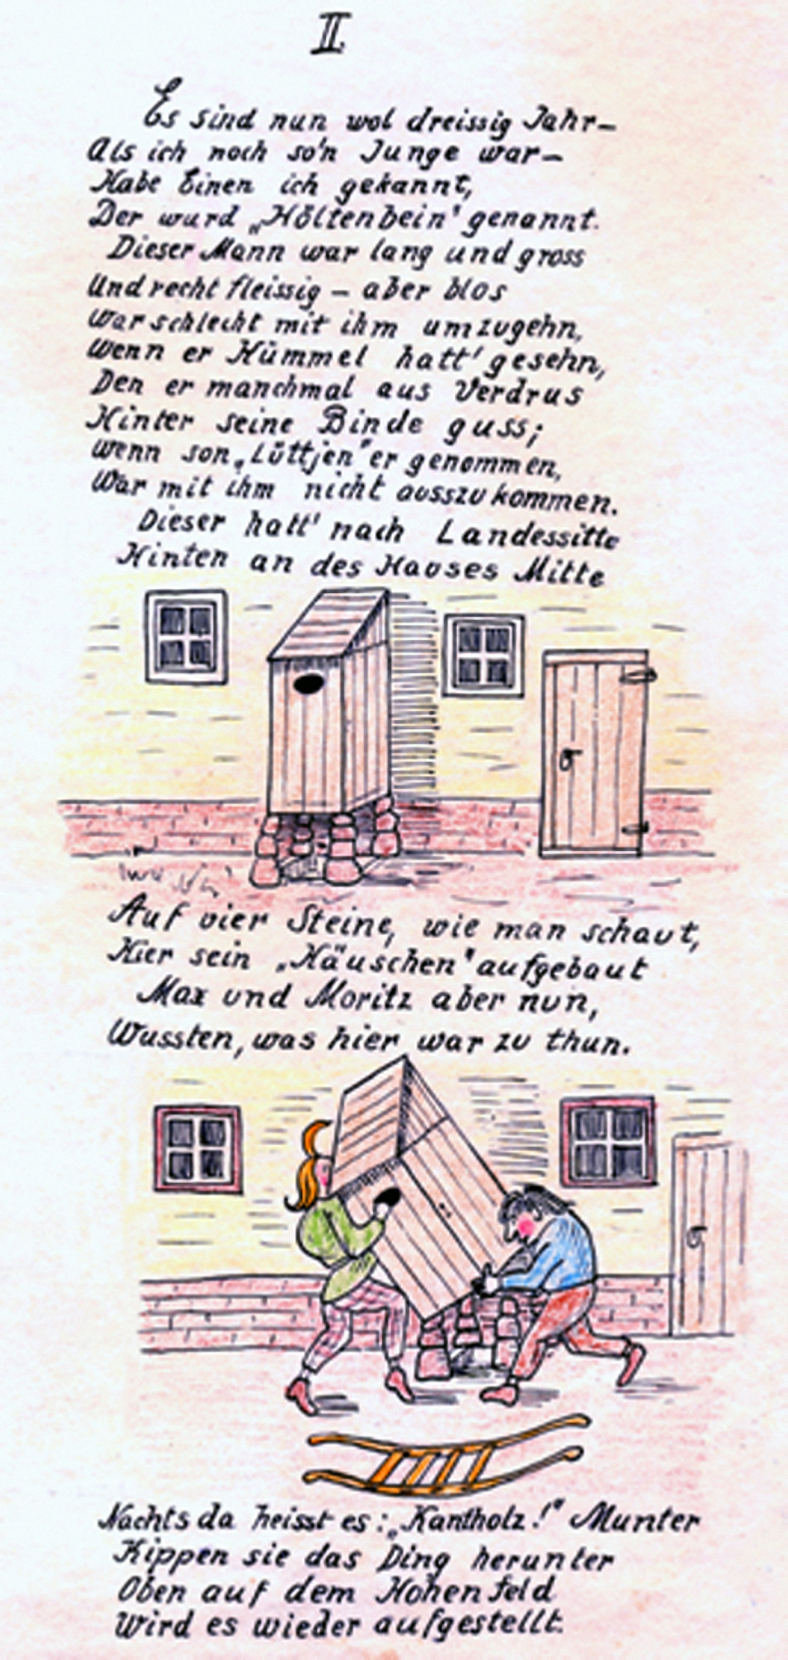 II
Es sind nun wol dreissig Jahr–
Als ich noch so'n Junge war–
Habe Einen ich gekannt,
Der wurd „Höltenbein" genannt.
Dieser Mann war lang und gross
Und recht fleissig – aber blos
War schlecht mit ihm umzugehn,
Wenn er Kümmel hatt' gesehn,
Den er manchmal aus Verdrus
Hinter seine Binde guss;
Wenn son „Lüttjen" er genommen,
War mit ihm nicht auszukommen.
Dieser hatt' nach Landessitte
Hinten an des Hauses Mitte
Auf vier Steine, wie man schaut,
Hier sein „Häuschen" aufgebaut
Max und Moritz aber nun,
Wussten, was hier war zu thun.
Nachts da heisst es: „Kantholz!" Munter
Kippen sie das Ding herunter
Oben auf dem Hohenfeld
Wird es wieder aufgestellt.